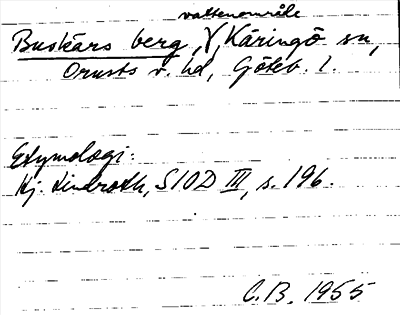 vattenområde
Buskärs berg, Käringö sn,
Orusts v. hd, Göteb. l.
Etymologi:
Hj. Lindroth, SIOD III, s. 196.
C.B. 1955